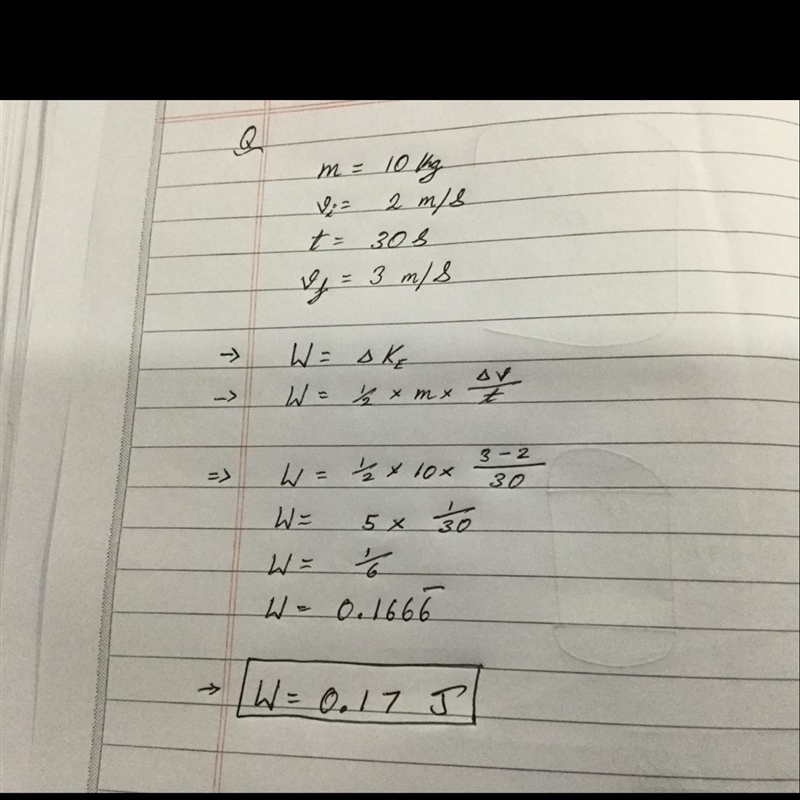 Q
m = 10 kg
vi = 2 m/s
t = 30 s
vf = 3 m/s
→ W = Δ KE
→ W = 1/2 × m × Δv/t
⇒ W = 1/2 × 10 × 3-2/30
W = 5 × 1/30
W = 1/6
W = 0.1666̅
→ W = 0.17 J